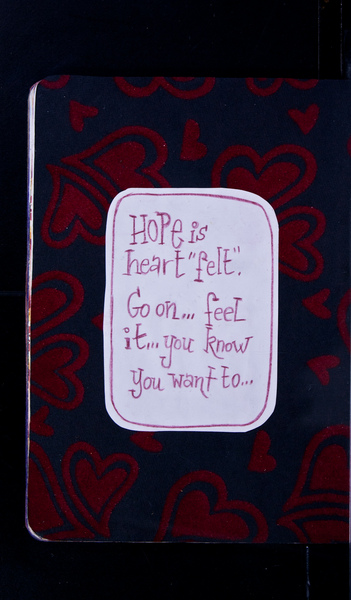 HOPe is
heart "felt".
Go on... feel
it... you know
you want to...